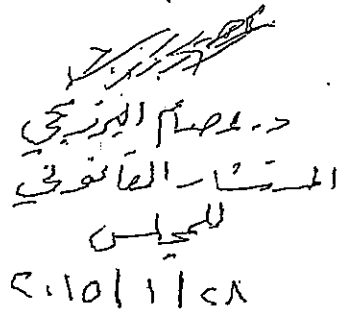 د. عصام البرزنجي
المستشار القانوني
للمجلس
٢٠١٥/١/٢٨